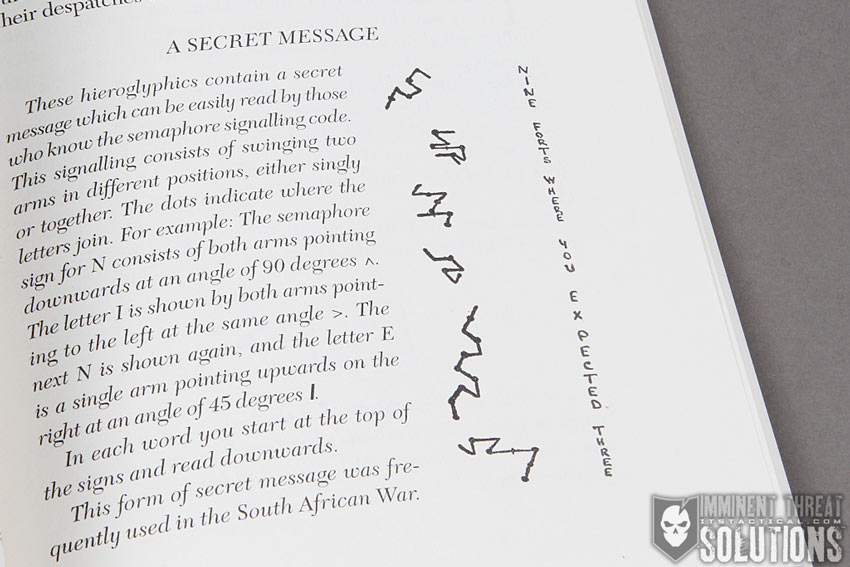 heir despatches
A SECRET MESSAGE
These hieroglyphics contain a secret
message which can be easily read by those
who know the semaphore signalling code.
This signalling consists of swinging two
arms in different positions, either singly
or together. The dots indicate where the
letters join. For example: The semaphore
sign for N consists of both arms pointing
downwards at an angle of 90 degrees ^.
The letter I is shown by both arms point-
ing to the left at the same angle >. The
next N is shown again, and the letter E
is a single arm pointing upwards on the
right at an angle of 45 degrees |.
In each word you start at the top of
the signs and read downwards.
This form of secret message was fre-
quently used in the South African War.
NINE FORTS WHERE YOU EXPECTED THREE
IMMINENT THREAT
ITSTACTICAL.COM
SOLUTIONS